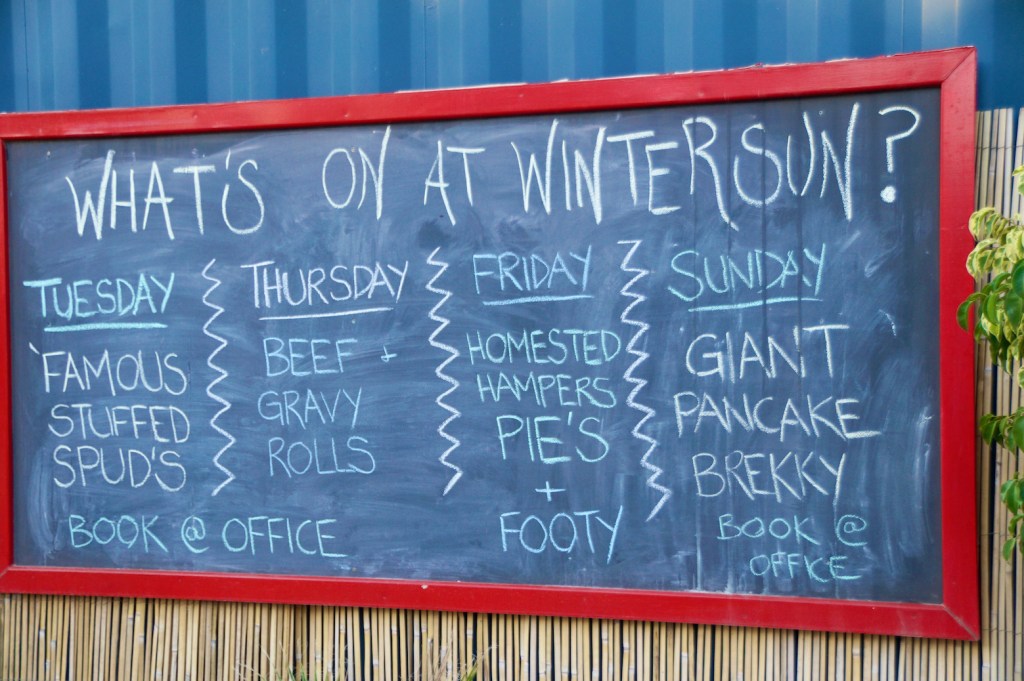 WHAT'S ON AT WINTERSUN?
TUESDAY
'FAMOUS
STUFFED
SPUD'S
THURSDAY
BEEF +
GRAVY
ROLLS
BOOK @ OFFICE
FRIDAY
HOMESTED
HAMPERS
PIE'S
+
FOOTY
SUNDAY
GIANT
PANCAKE
BREKKY
BOOK @
OFFICE